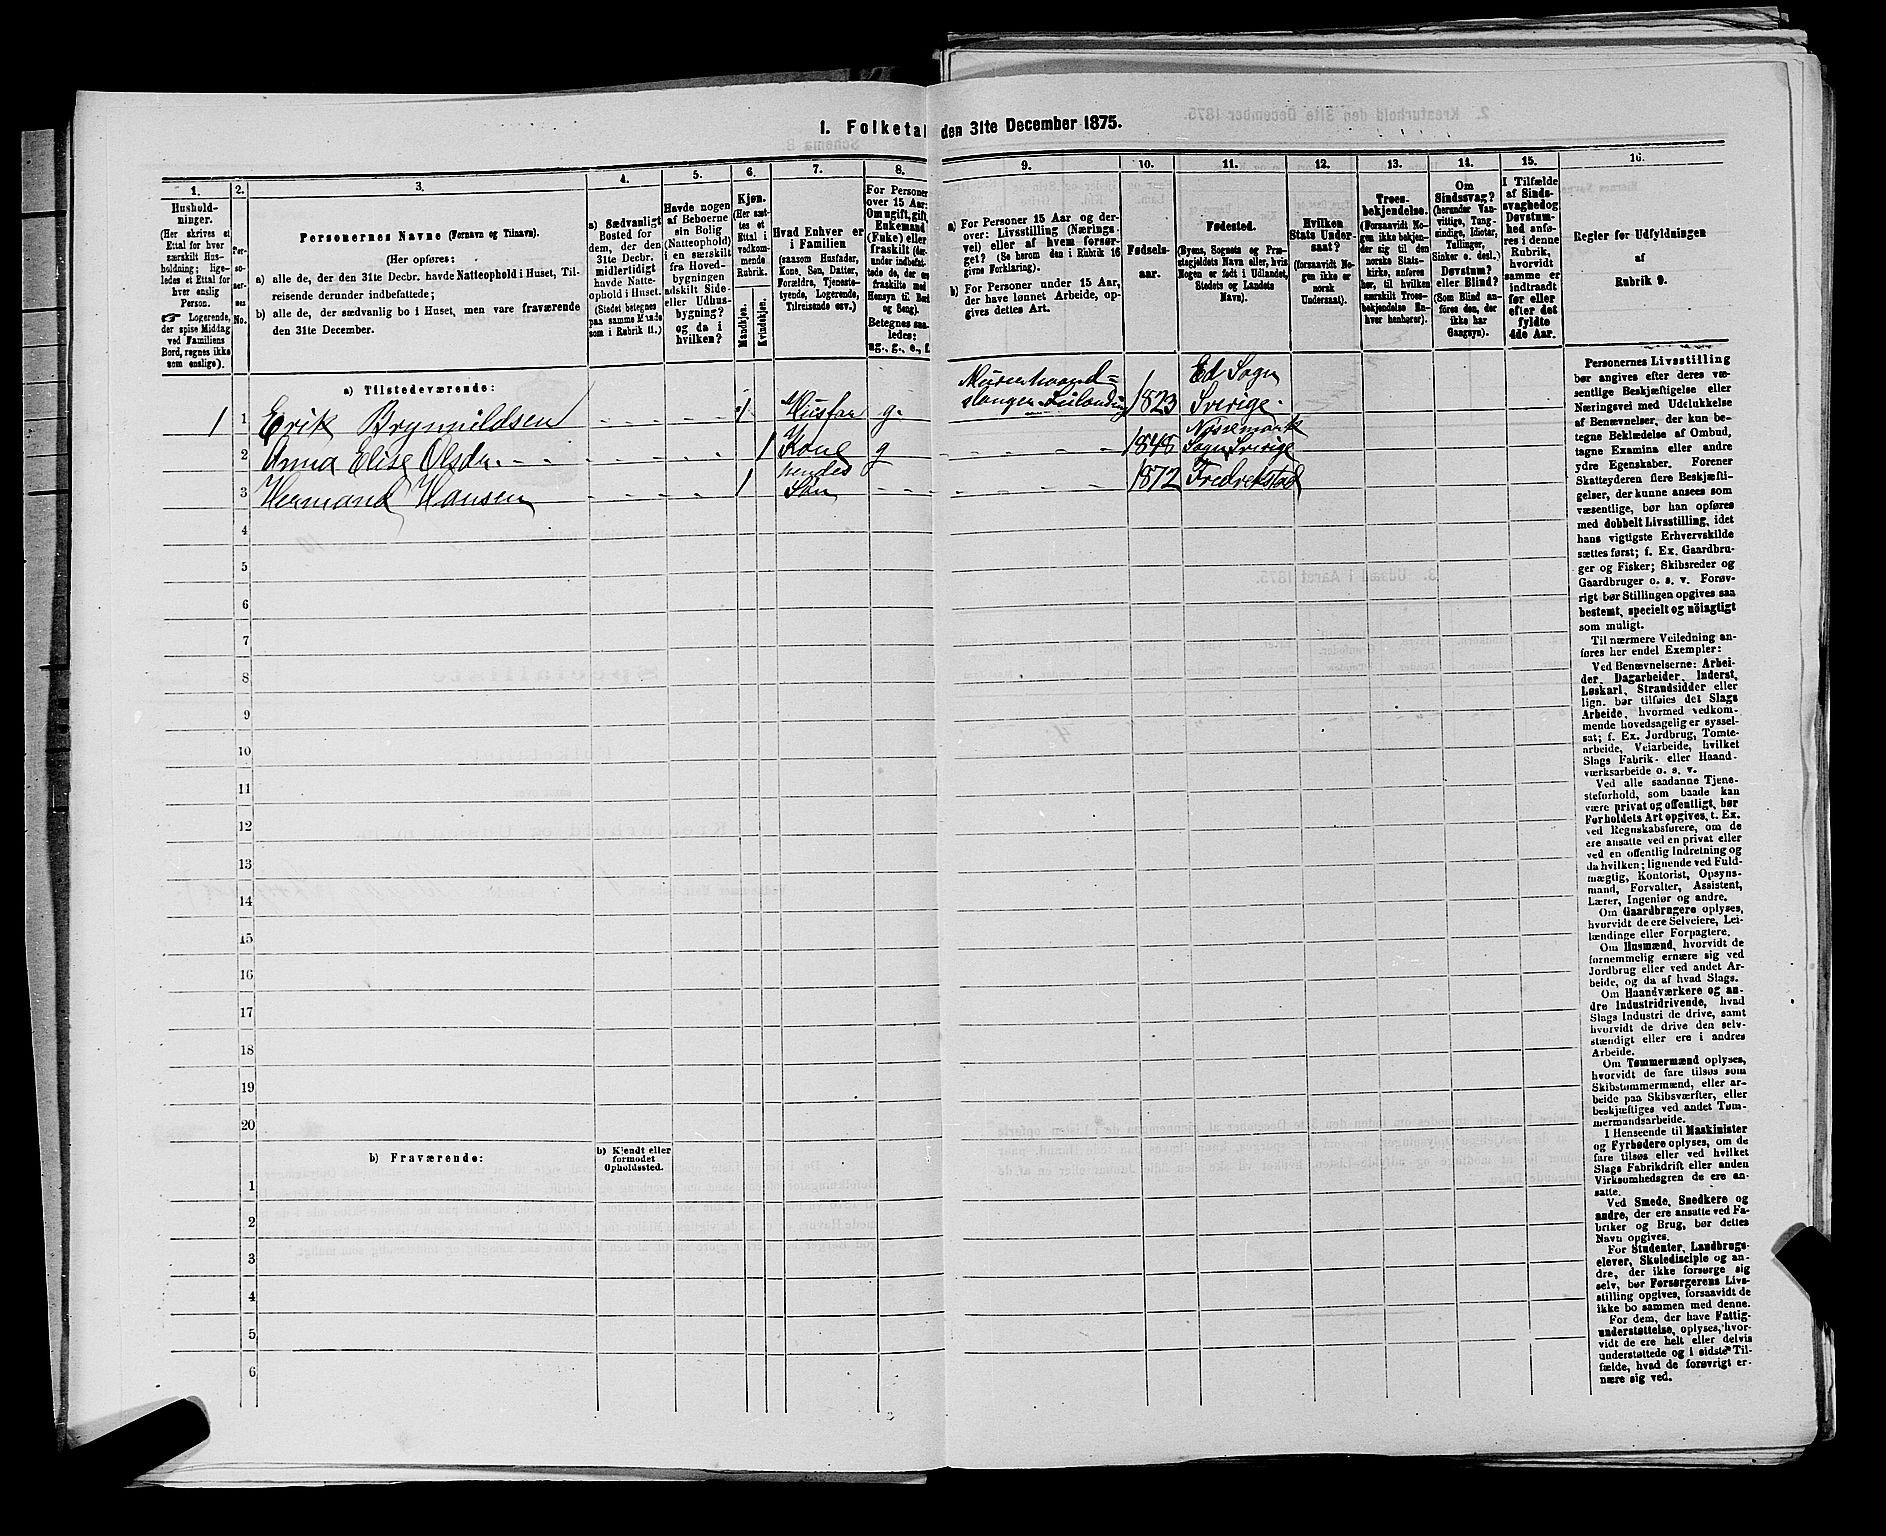 1. Folketal den 31te December 1875.
1. 2. 3. 4. 5. 6. 7. 8. 9. 10. 11. 12. 13. 14. 15. 16.
Hushold-
ninger.
(Her skrives et
Ettal for hver
særskilt Hus-
holdning; lige-
ledes et Ettal for
hver enslig
Person.
☞ Logerende,
der spise Middag
ved Familiens
Bord, regnes ikke
som enslige).
Per-
so-
ner-
nes
No.
Personernes Navne (Fornavn og Tilnavn).
(Her opføres:
a) alle de, der den 31te Decbr. havde Natteophold i Huset, Til-
reisende derunder indbefattede;
b) alle de, der sædvanlig bo i Huset, men vare fraværende
den 31te December.
a) Sædvanligt
Bosted for
dem, der den
31te Decbr.
midlertidigt
havde Natte-
ophold i Huset.
(Stedet betegnes
paa samme Maade
som i Rubrik 11.)
Havde nogen
af Beboerne
sin Bolig
(Natteophold)
i en særskilt
fra Hoved-
bygningen
adskilt Side-
eller Udhus-
bygning?
og da i
hvilken?
Kjøn.
(Her sæt-
tes et
Ettal i
vedkom-
mende
Rubrik.
Mandkjøn.
Kvindekjøn.
Hvad Enhver er
i Familien
(saasom Husfader,
Kone, Søn, Datter,
Forældre, Tjeneste-
tyende, Logerende,
Tilreisende osv.)
For Personer
over 15 Aar:
Om ugift, gift,
Enkemand
(Enke) eller
fraskilt (der-
under indbefat-
tede de, der ere
fraskilte med
Hensyn til Bord
og Seng).
Betegnes saa-
ledes:
ug., g., e., f.
a) For Personer 15 Aar og der-
over: Livsstilling (Nærings-
vei) eller af hvem forsør-
get? (Se herom den i Rubrik 16
givne Forklaring).
b) For Personer under 15 Aar,
der have lønnet Arbeide, op-
gives dettes Art.
Fødsels-
aar.
Fødested.
(Byens, Sognets og Præ-
stegjeldets Navn eller, hvis
Nogen er født i Udlandet,
Stedets og Landets
Navn).
Hvilken
Stats Under-
saat?
(forsaavidt No-
gen ikke er
norsk
Undersaat).
Troes-
bekjendelse.
(Forsaavidt No-
gen ikke bekjen-
der sig til den
norske Stats-
kirke, anføres
her, til hvilken
særskilt Troes-
bekjendelse En-
hver henhører).
Om
Sindssvag?
(herunder Van-
vittige, Tung-
sindige, Idioter,
Tullinger,
Sinker o. desl.)
Døvstum?
eller Blind?
(Som Blind an-
føres den, der
ikke har
Gangsyn).
I Tilfælde
af Sinds-
svaghed og
Døvstum-
hed anfø-
res i denne
Rubrik,
hvorvidt
samme er
indtraadt
før eller
efter det
fyldte
4de Aar.
Regler for Udfyldningen
af
Rubrik 9.
a) Tilstedeværende:
1 1 Erik Brynnildsen 1 Husfar g. 1823 Ed Sogn
Sverige.
2 Anna Elise Olsdr. 1 Kone g 1848 Nössemark
Sogn Sverige
3 Hermand Hansen 1 hendes
Søn 1872 Fredrikstad
4
5
6
7
8
9
10
11
12
13
14
15
16
17
18
19
20
b) Fraværende:
b) Kjendt eller
formodet
Opholdssted.
1
2
3
4
5
6
Personernes Livsstilling
bør angives efter deres væ-
sentlige Beskjæftigelse eller
Næringsvei med Udelukkelse
af Benævnelser, der kun be-
tegne Beklædelse af Ombud,
tagne Examina eller andre
ydre Egenskaber. Forener
Skatteyderen flere Beskjæfti-
gelser, der kunne ansees som
væsentlige, bør han opføres
med dobbelt Livsstilling, idet
hans vigtigste Erhvervskilde
sættes først; f. Ex. Gaardbru-
ger og Fisker; Skibsreder og
Gaardbruger o. s. v. Forøv-
rigt bør Stillingen opgives saa
bestemt, specielt og nöiagtigt
som muligt.
Til nærmere Veiledning an-
føres her endel Exempler:
Ved Benævnelserne: Arbei-
der, Dagarbeider, Inderst,
Løskarl, Strandsidder eller
lign. bør tilføies det Slags
Arbeide, hvormed vedkom-
mende hovedsagelig er syssel-
sat; f. Ex. Jordbrug, Tomte-
arbeide, Veiarbeide, hvilket
Slags Fabrik- eller Haand-
værksarbeide o. s. v.
Ved alle saadanne Tjene-
steforhold, som baade kan
være privat og offentligt, bør
Forholdets Art opgives, t. Ex.
ved Regnskabsførere, om de
ere ansatte ved en privat eller
ved en offentlig Indretning og
da hvilken; lignende ved Fuld-
mægtig, Kontorist, Opsyns-
mand, Forvalter, Assistent,
Lærer, Ingeniør og andre.
Om Gaardbrugere oplyses,
hvorvidt de ere Selveiere, Lei-
lændinge eller Forpagtere.
Om Husmænd, hvorvidt de
fornemmelig ernære sig ved
Jordbrug eller ved andet Ar-
beide, og da af hvad Slags.
Om Haandværkere og an-
dre Industridrivende, hvad
Slags Industri de drive, samt
hvorvidt de drive den selv-
stændigt eller ere i andres
Arbeide.
Om Tømmermænd oplyses,
hvorvidt de fare tilsøs som
Skibstømmermænd, eller ar-
beide paa Skibsværfter, eller
beskjæftiges ved andet Tøm-
mermandsarbeide.
I Henseende til Maskinister
og Fyrbødere oplyses, om de
fare tilsøs eller ved hvilket
Slags Fabrikdrift eller anden
Virksomhedsgren de ere an-
satte.
Ved Smede, Snedkere og
andre, der ere ansatte ved Fa-
briker og Brug, bør dettes
Navn opgives.
For Studenter, Landbrugs-
elever, Skoledisciple og an-
dre, der ikke forsørge sig
selv, bør Forsørgerens Livs-
stilling opgives, forsaavidt de
ikke bo sammen med denne.
For dem, der have Fattig-
understøttelse, oplyses, hvor-
vidt de ere helt eller delvis
understøttede og i sidste Til-
fælde, hvad de forøvrigt er-
nære sig ved.